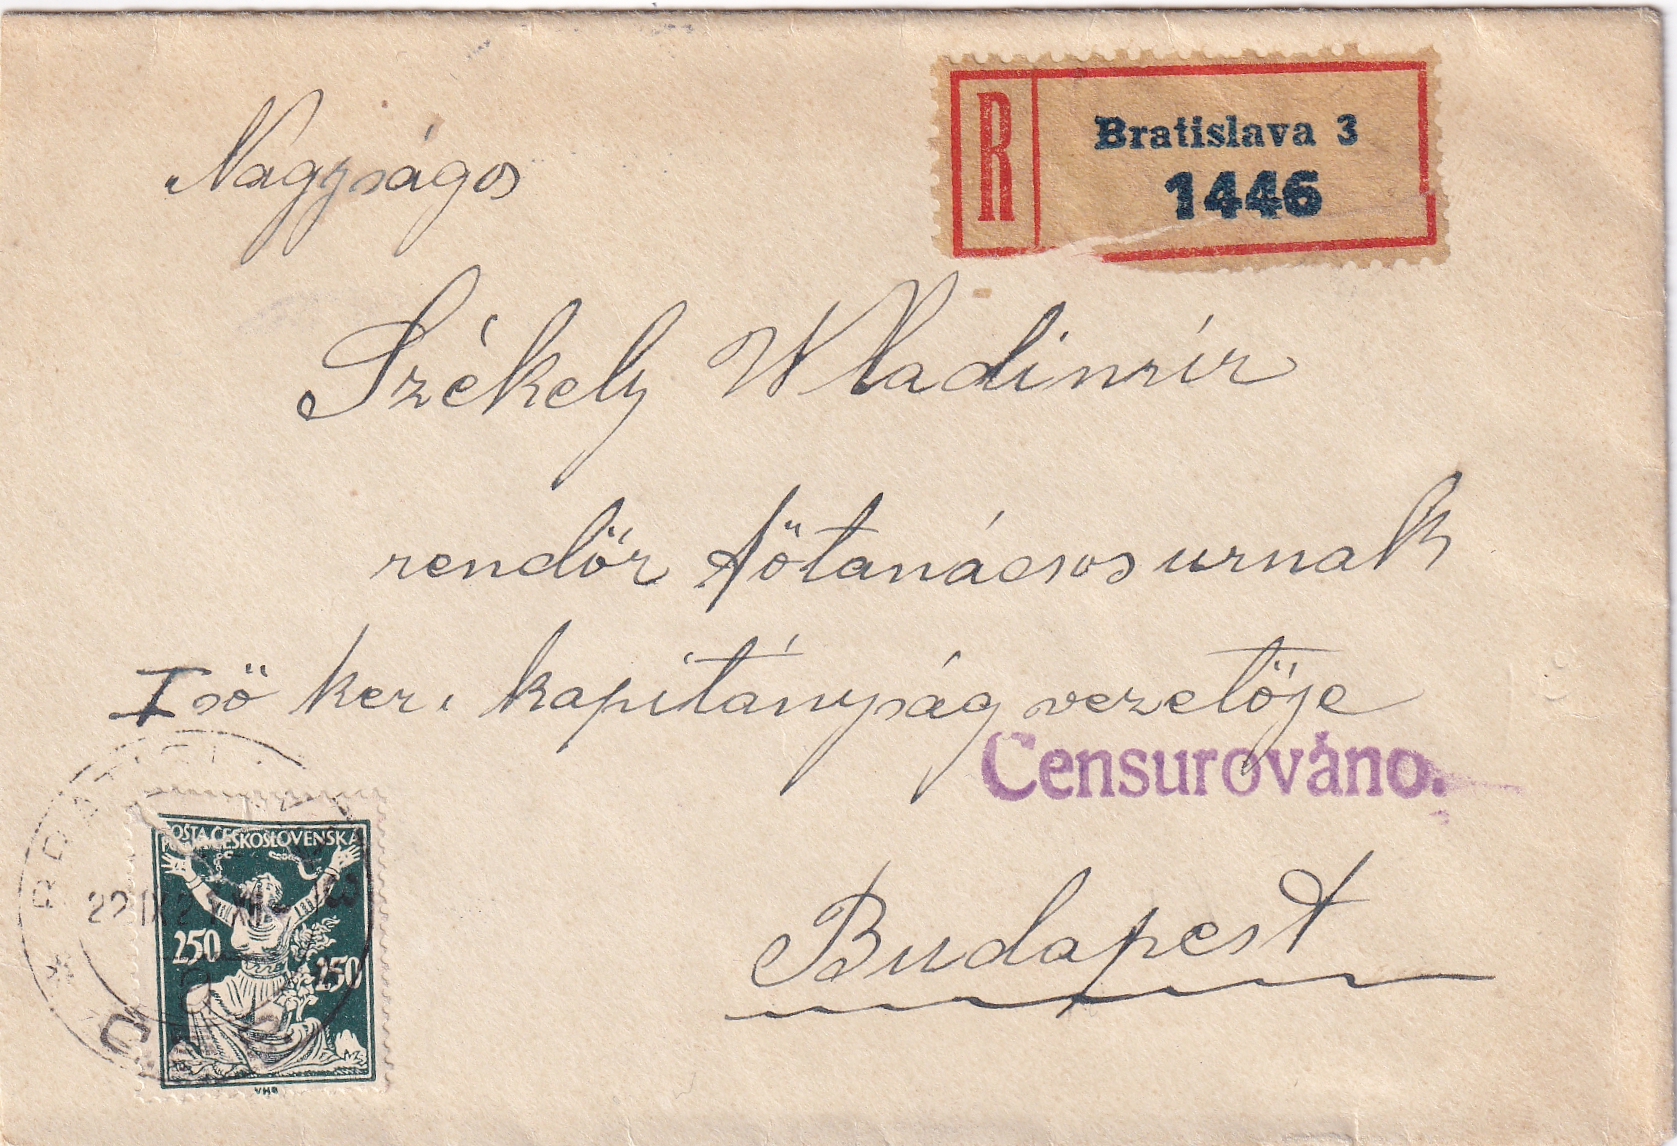 R
Bratislava 3
1446
Nagyságos
Székely Wladimír
rendőr főtanácsos urnak
I ső ker. kapitányság vezetője
Censurováno.
Budapest
POŠTA ČESKOSLOVENSKÁ
22 IX 2
250
250